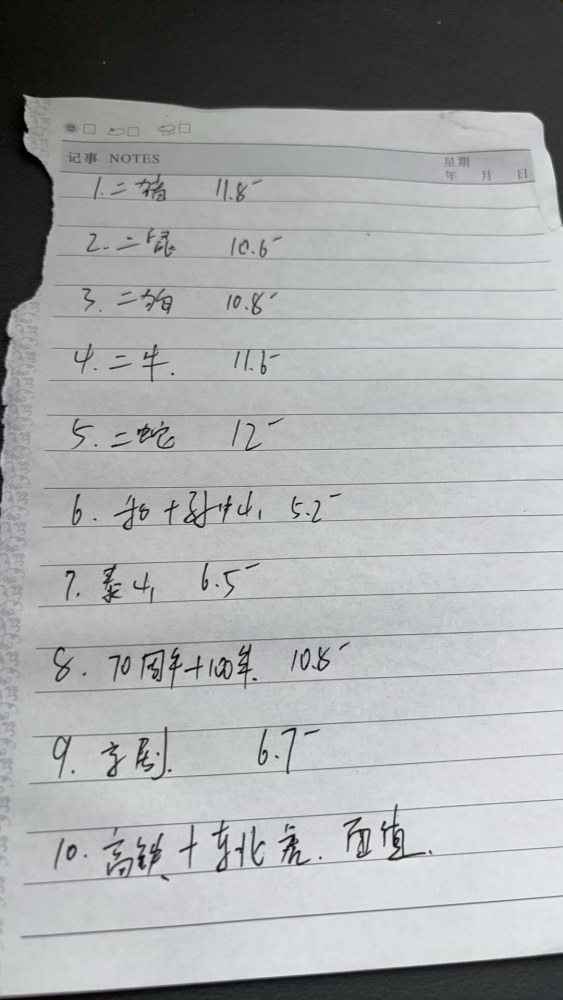 记事 NOTES
星期
年 月 日
1. 二猪 11.8-
2. 二鼠 10.6-
3. 二狗 10.8-
4. 二牛. 11.6-
5. 二蛇 12-
6. 船+孙中山 5.2-
7. 泰山 6.5-
8. 70周年+100年. 10.8-
9. 京剧. 6.7-
10. 高铁+东北虎. 面值.